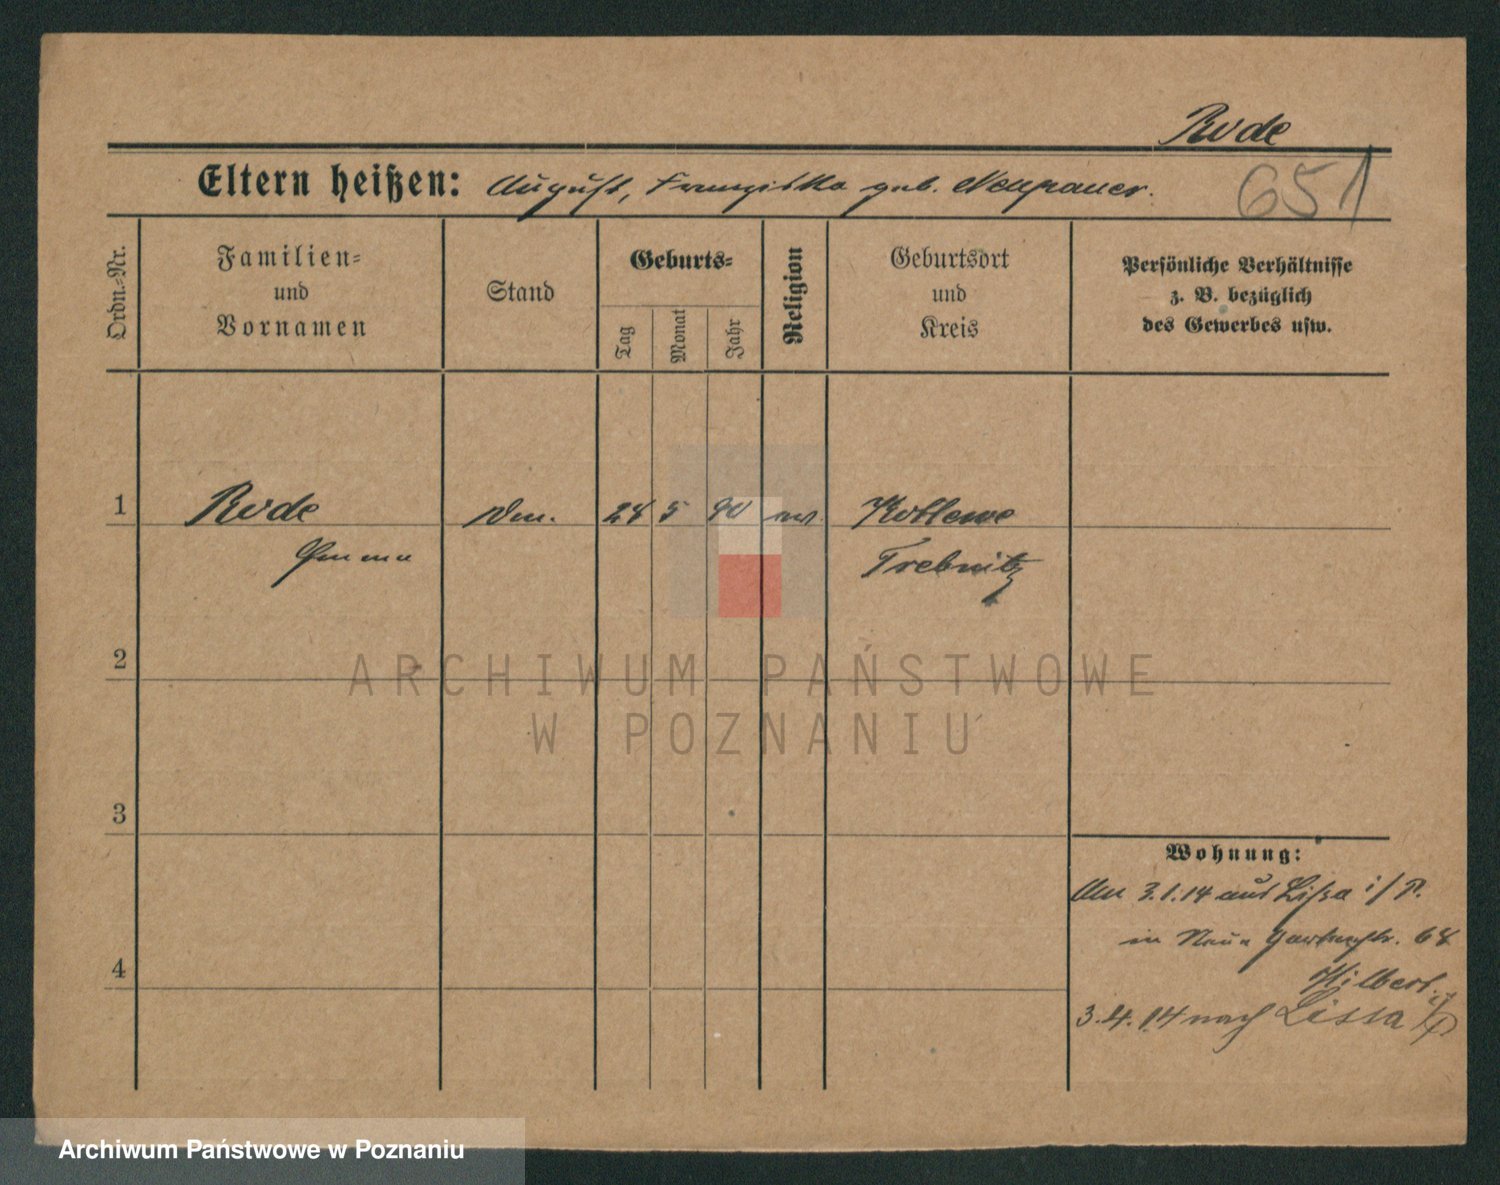 Rode
Eltern heißen: August, Franziska geb. Neugebauer.
651
Ordn.-Nr.
Familien-
und
Vornamen
Stand
Geburts-
Tag
Monat
Jahr
Religion
Geburtsort
und
Kreis
Persönliche Verhältnisse
z. B. bezüglich
des Gewerbes usw.
1 Rode 5 90 ev.
Emma Trebnitz
2
3
4
Wohnung:
Am 3.1.14 aus Lissa i/P.
in Neue Gartenstr. 68
Hilbert.
3.4.14 nach Lissa i/P
ARCHIWUM PAŃSTWOWE
W POZNANIU
Archiwum Państwowe w Poznaniu